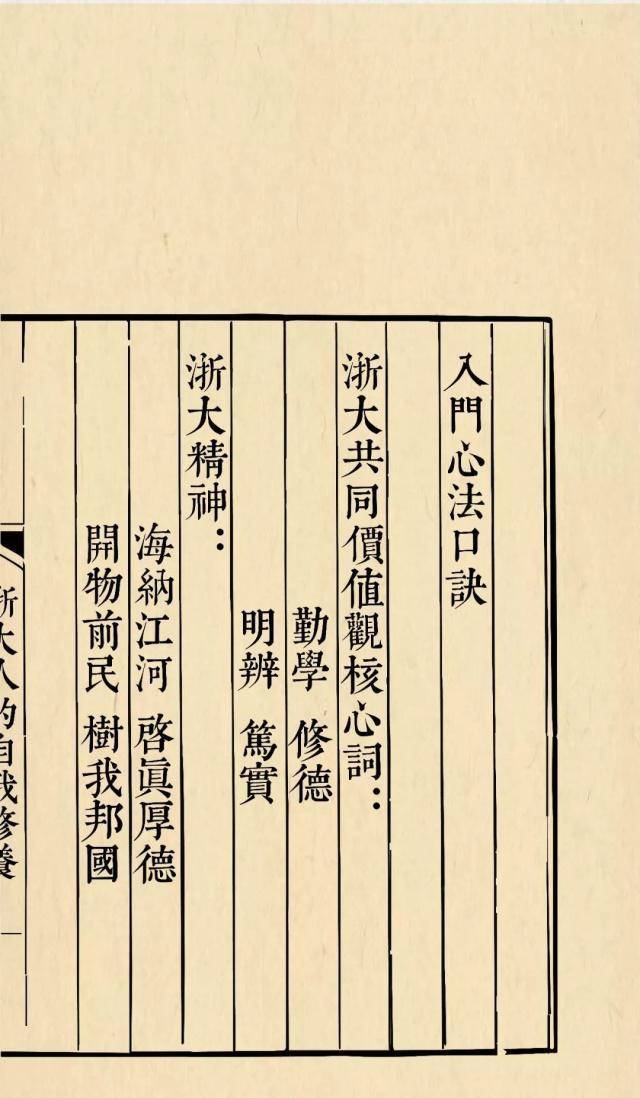 入門心法口訣
浙大共同價值觀核心詞：
勤學 修德
明辨 篤實
浙大精神：
海納江河 啓眞厚德
開物前民 樹我邦國
浙大人的自我修養
一